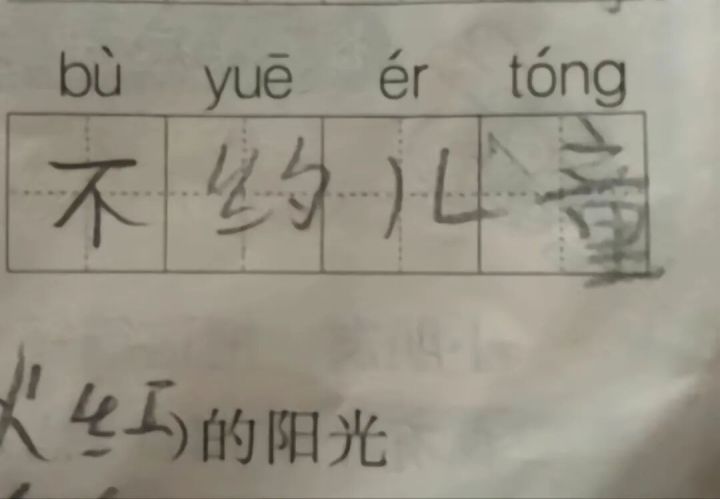 bù yuē ér tóng
不约儿童
火红)的阳光